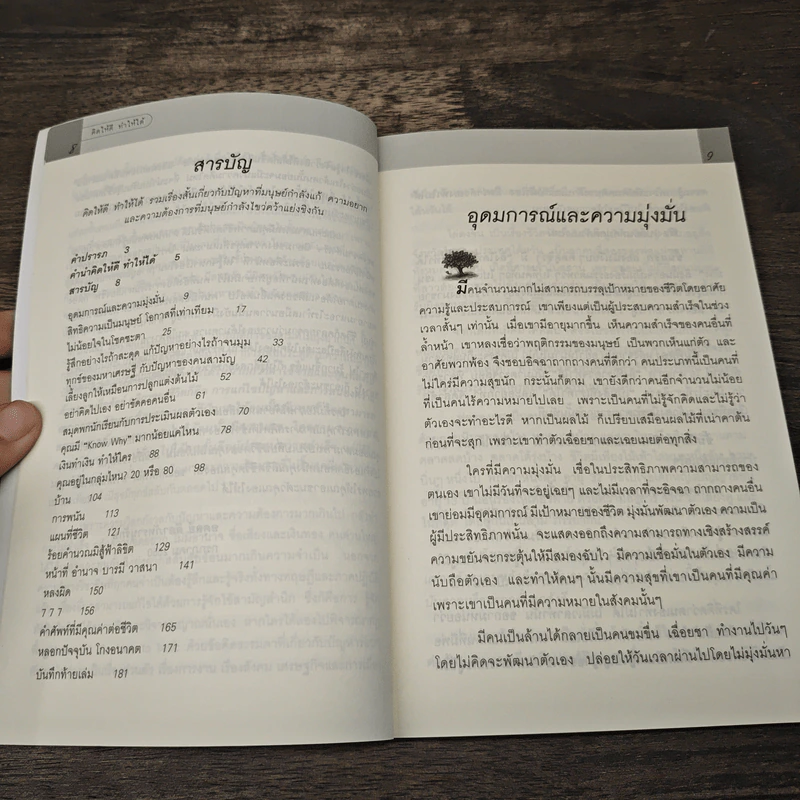 8
คิดให้ดี ทำให้ได้
สารบัญ
คิดให้ดี ทำให้ได้ รวมเรื่องสั้นเกี่ยวกับปัญหาที่มนุษย์กำลังแก้ ความอยาก
และความต้องการที่มนุษย์กำลังไขว่คว้าแย่งชิงกัน
คำปรารภ 3
คำนำคิดให้ดี ทำให้ได้ 5
สารบัญ 8
อุดมการณ์และความมุ่งมั่น 9
สิทธิความเป็นมนุษย์ โอกาสที่เท่าเทียม 17
ไม่น้อยใจในโชคชะตา 25
รู้สึกอย่างไรถ้าสะดุด แก้ปัญหาอย่างไรถ้าจนมุม 33
ทุกข์ของมหาเศรษฐี กับปัญหาของคนสามัญ 42
เลี้ยงลูกให้เหมือนการปลูกแต่งต้นไม้ 52
อย่าคิดไปเอง อย่าขัดคอคนอื่น 61
สมุดพกนักเรียนกับการประเมินผลตัวเอง 70
คุณมี "Know Why" มากน้อยแค่ไหน 78
เงินทำเงิน ทำให้ใคร 88
คุณอยู่ในกลุ่มไหน? 20 หรือ 80 98
บ้าน 104
การพนัน 113
แผนที่ชีวิต 121
ร้อยคำนวณมิสู้ฟ้าลิขิต 129
หน้าที่ อำนาจ บารมี วาสนา 141
หลงผิด 150
7 7 7 156
คำศัพท์ที่มีคุณค่าต่อชีวิต 165
หลอกปัจจุบัน โกงอนาคต 171
บันทึกท้ายเล่ม 181
9
อุดมการณ์และความมุ่งมั่น
มีคนจำนวนมากไม่สามารถบรรลุเป้าหมายของชีวิตโดยอาศัย
ความรู้และประสบการณ์ เขาเพียงแต่เป็นผู้ประสบความสำเร็จในช่วง
เวลาสั้นๆ เท่านั้น เมื่อเขามีอายุมากขึ้น เห็นความสำเร็จของคนอื่นที่
ล้ำหน้า เขาหลงเชื่อว่าพฤติกรรมของมนุษย์ เป็นพวกเห็นแก่ตัว และ
อาศัยพวกพ้อง จึงชอบอิจฉาถากถางคนที่ดีกว่า คนประเภทนี้เป็นคนที่
ไม่ใคร่มีความสุขนัก กระนั้นก็ตาม เขายังดีกว่าคนอีกจำนวนไม่น้อย
ที่เป็นคนไร้ความหมายไปเลย เพราะเป็นคนที่ไม่รู้จักคิดและไม่รู้ว่า
ตัวเองจะทำอะไรดี หากเป็นผลไม้ ก็เปรียบเสมือนผลไม้ที่เน่าคาต้น
ก่อนที่จะสุก เพราะเขาทำตัวเฉื่อยชาและเฉยเมยต่อทุกสิ่ง
ใครที่มีความมุ่งมั่น เชื่อในประสิทธิภาพความสามารถของ
ตนเอง เขาไม่มีวันที่จะอยู่เฉยๆ และไม่มีเวลาที่จะอิจฉา ถากถางคนอื่น
เขาย่อมมีอุดมการณ์ มีเป้าหมายของชีวิต มุ่งมั่นพัฒนาตัวเอง ความเป็น
ผู้มีประสิทธิภาพนั้น จะแสดงออกถึงความสามารถทางเชิงสร้างสรรค์
ความขยันจะกระตุ้นให้มีสมองฉับไว มีความเชื่อมั่นในตัวเอง มีความ
นับถือตัวเอง และทำให้คนๆ นั้นมีความสุขที่เขาเป็นคนที่มีคุณค่า
เพราะเขาเป็นคนที่มีความหมายในสังคมนั้นๆ
มีคนเป็นล้านได้กลายเป็นคนขมขื่น เฉื่อยชา ทำงานไปวันๆ
โดยไม่คิดจะพัฒนาตัวเอง ปล่อยให้วันเวลาผ่านไปโดยไม่มุ่งมั่นหา